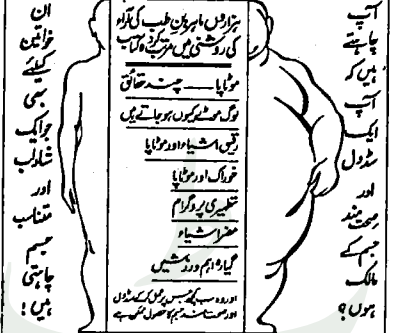 آپ
چاہتے
ہیں کہ
آپ
ایک
سڈول
اور
صحت مند
جسم کے
مالک
ہوں؟
ہزار جس ماہرین طب کی آراء
کی روشنی میں مرتب کردہ کتاب
موٹاپا ـــ چند حقائق
لوگ موٹے کیوں ہو جاتے ہیں
رقیق اشیاء اور موٹاپا
خوراک اور موٹاپا
تطہیری پروگرام
مضر اشیاء
گیارہ اہم ورزشیں
اور وہ سب کچھ جس پر عمل کر کے سڈول
اور صحت مند جسم کا حصول ممکن ہے
ان
خواتین
کیلئے
بھی
جو ایک
شاداب
اور
متناسب
جسم
چاہتی
ہیں!